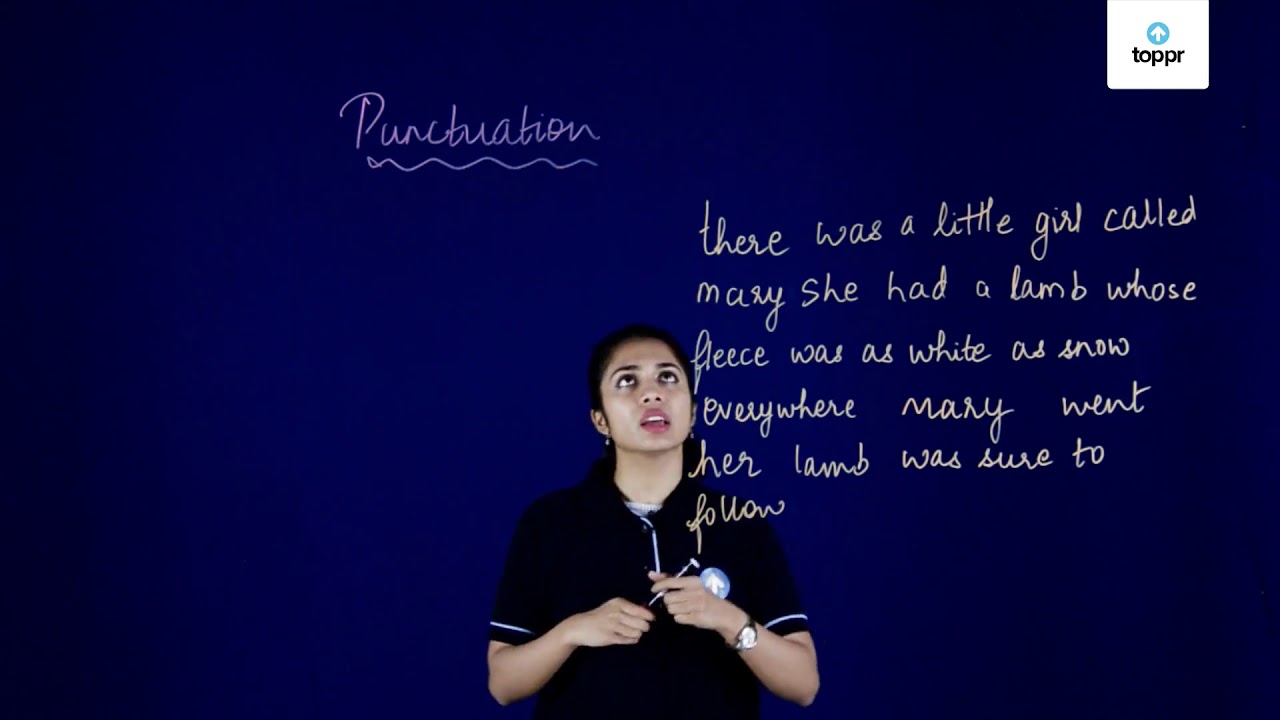 toppr
Punctuation
there was a little girl called
mary she had a lamb whose
fleece was as white as snow
everywhere mary went
her lamb was sure to
follow